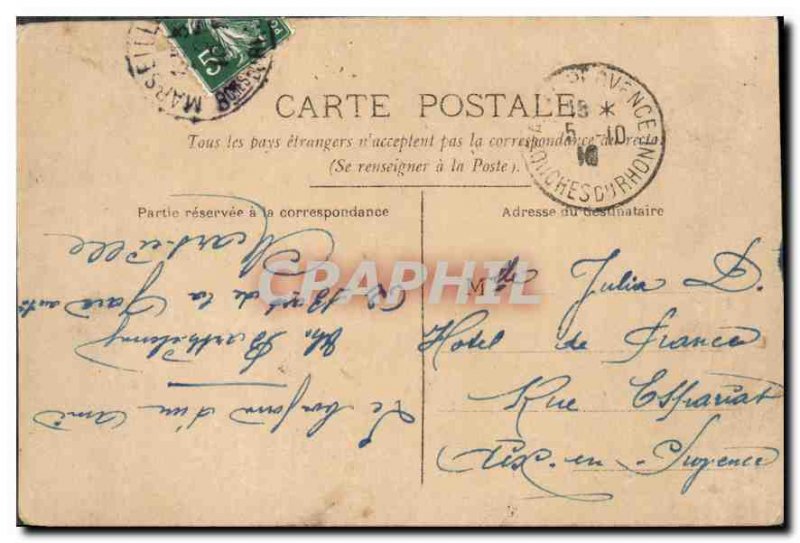 MARSEILLE
5
CARTE POSTALE
Tous les pays étrangers n'acceptent pas la correspondance au recto
(Se renseigner à la Poste).
PROVENCE
5 10
BOUCHES DU RHONE
Partie réservée à la correspondance
Adresse du destinataire
Le bonjour d'un ami
Barthélemy
de la Gare
Marseille
Mlle Julia D.
Hotel de France
Rue Espariat
Aix-en-Provence
CPAPHIL